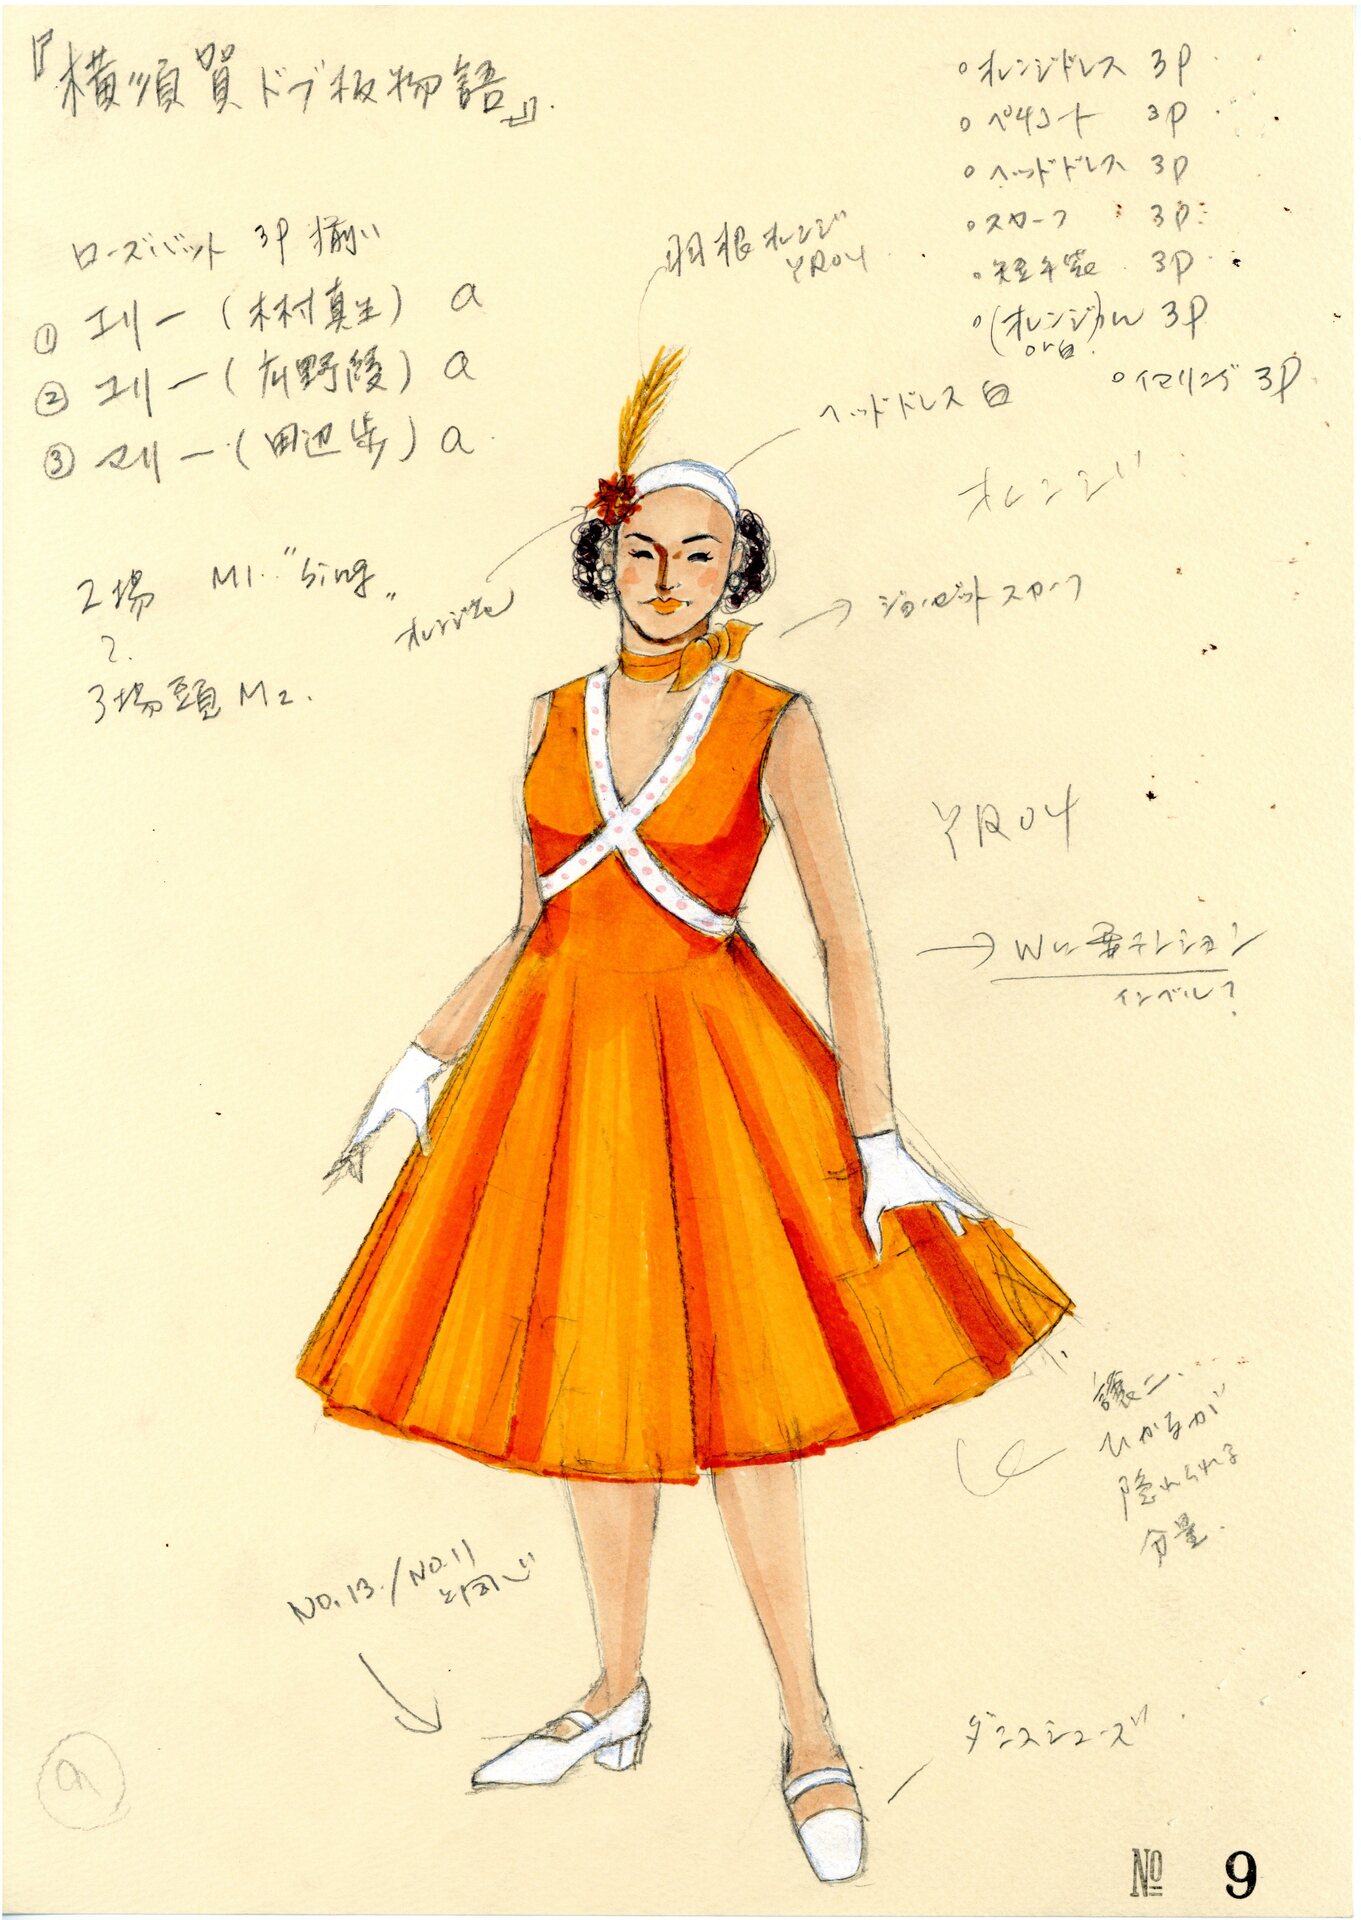 『横須賀ドブ板物語』.
ローズバット 3P 揃い
① エリー (木村真生) a
② ユリー (広野綾) a
③ マリー (田辺歩) a
2場 M1. "Sing"
2.
3場頭 M2.
○オレンジドレス 3P
○ペチコート 3P
○ヘッドドレス 3P
○スカーフ 3P
○短手袋 3P
○(オレンジ) 3P
or白.
○イヤリング 3P
羽根オレンジ
YR04
ヘッドドレス 白
オレンジ
オレンジ花
→ ジョーゼットスカーフ
YR04
→ Wに要テンション
インベル?
譲二.
ひかるが
隠れられる
分量.
NO.13./NO.11
と同じ
ダンスシューズ
a
№ 9